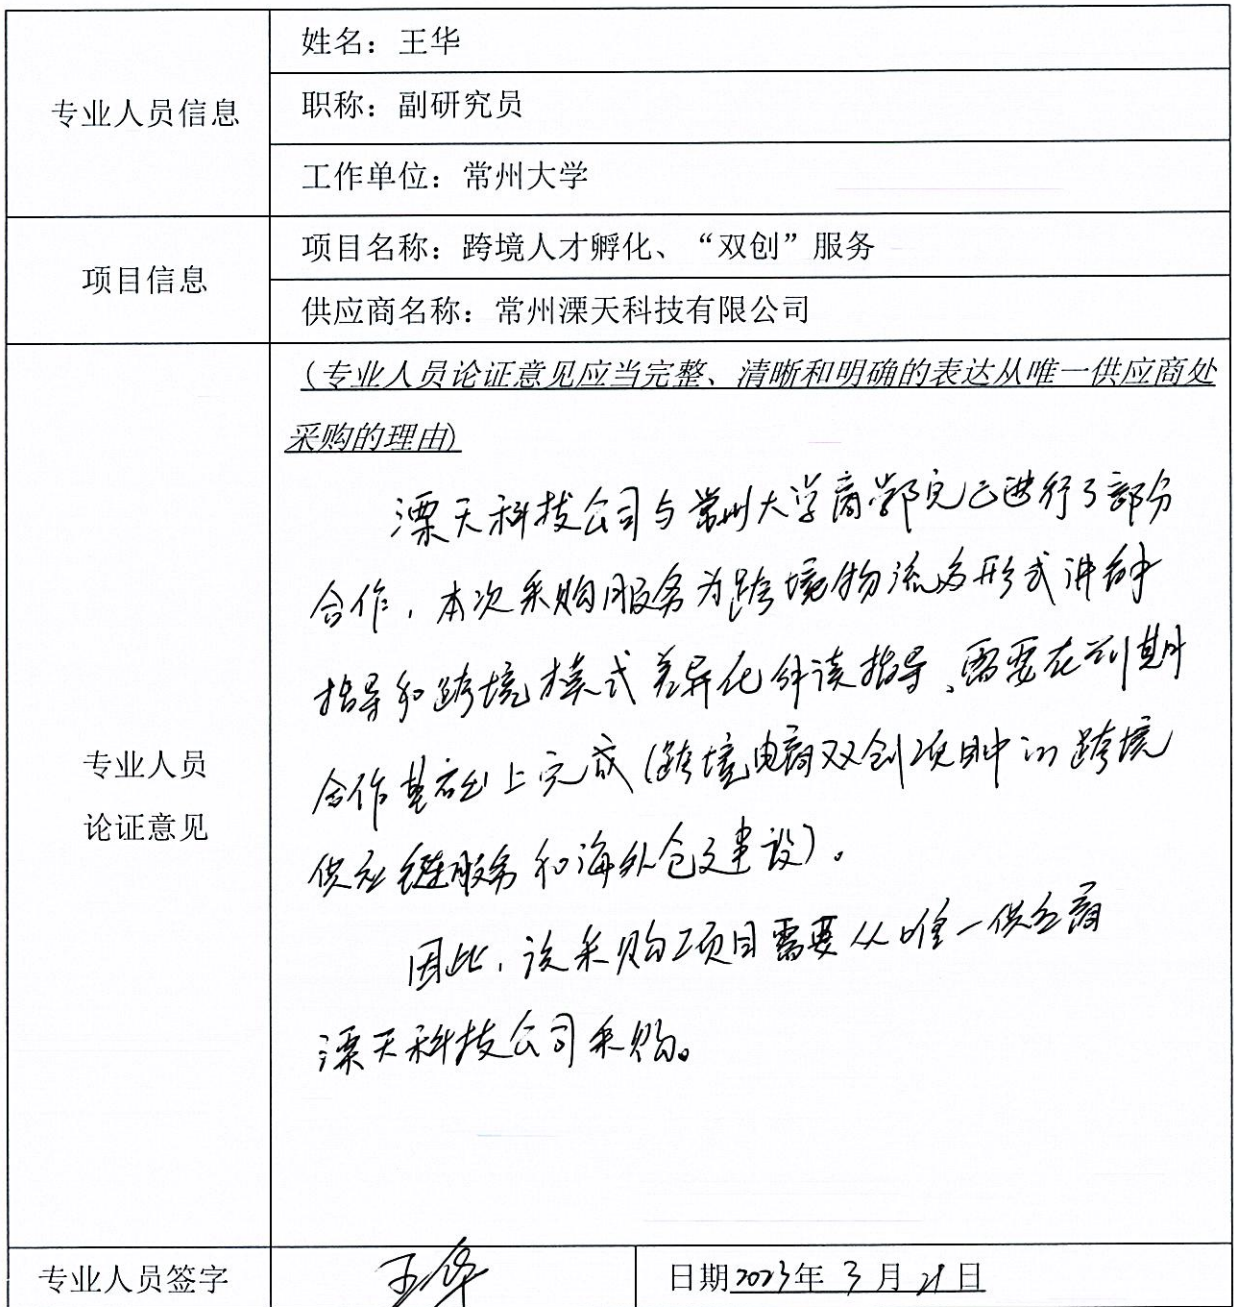 专业人员信息
姓名：王华
职称：副研究员
工作单位：常州大学
项目信息
项目名称：跨境人才孵化、“双创”服务
供应商名称：常州溧天科技有限公司
专业人员
论证意见
（专业人员论证意见应当完整、清晰和明确的表达从唯一供应商处
采购的理由）
溧天科技公司与常州大学商学院已进行了部分
合作，本次采购服务为跨境物流多形式讲解
指导和跨境模式差异化解读指导、需要在前期
合作基础上完成（跨境电商双创项目中的跨境
供应链服务和海外仓建设）。
因此，该采购项目需要从唯一供应商
溧天科技公司采购。
专业人员签字
王华
日期2023年3月21日